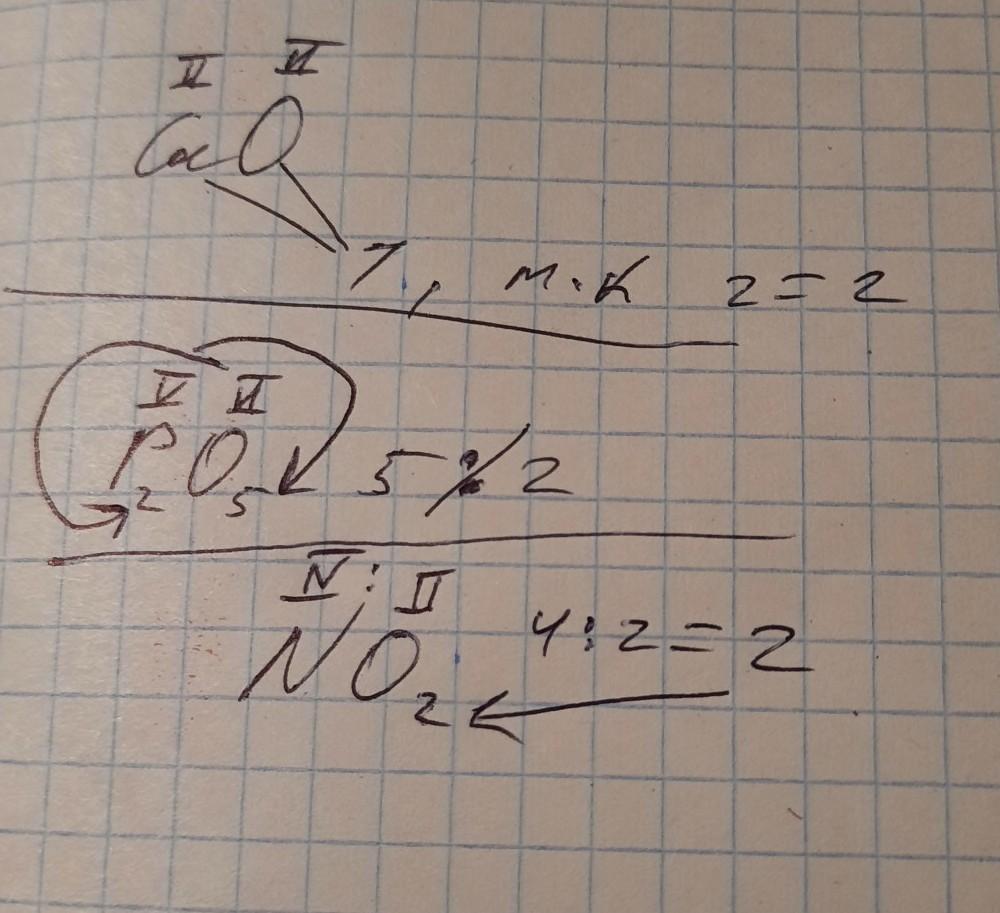 II II
CaO
1, т.к 2=2
V II
P₂O₅ 5 ⁒ 2
IV : II
NO₂ 4:2=2